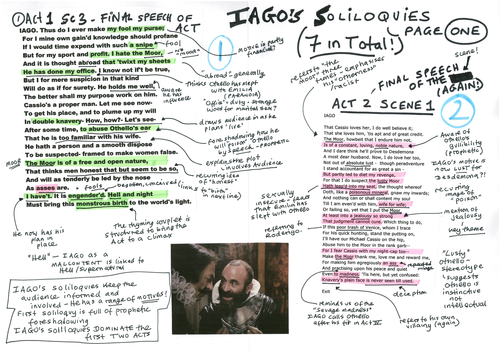 IAGO'S SOLILOQUIES
(7 in Total!)
PAGE ONE
① Act 1 Sc3 - FINAL SPEECH OF ACT
1
IAGO. Thus do I ever make my fool my purse;
For I mine own gain'd knowledge should profane
If I would time expend with such a snipe
But for my sport and profit. I hate the Moor,
And it is thought abroad that 'twixt my sheets
He has done my office. I know not if't be true,
But I for mere suspicion in that kind
Will do as if for surety. He holds me well,
The better shall my purpose work on him.
Cassio's a proper man. Let me see now-
To get his place, and to plume up my will
In double knavery- How, how?- Let's see-
After some time, to abuse Othello's ear
That he is too familiar with his wife.
He hath a person and a smooth dispose
To be suspected- framed to make women false.
The Moor is of a free and open nature,
That thinks men honest that but seem to be so,
And will as tenderly be led by the nose
As asses are.
I have't. It is engender'd. Hell and night
Must bring this monstrous birth to the world's light.
fool
MOTIVE is partly financial?
abroad - generally
Thinks Othello has slept with Emilia (PARANOIA)
"Office" = duty - strange word for marital sex?
aware of influence
draws audience in as he plans 'live'
foreshadowing how he will poison Othello with speech - prophetic
explains the plot
involves Audience
recurring idea of "honesty"
MOOR
The rhyming couplet is structured to bring the Act to a climax
He now has his plan in place
"Hell" - IAGO as a MALCONTENT is linked to Hell / supernatural
IAGO's soliloquies keep the audience informed and involved - He has a range of motives!
First soliloquy is full of prophetic foreshadowing
IAGO's SOLILOQUIES DOMINATE the first TWO ACTS
FINAL SPEECH OF THE scene! (AGAIN!)
ACT 2 SCENE 1
2
refers to the "moor" itself emphasises his 'otherness' racist
IAGO
That Cassio loves her, I do well believe it;
That she loves him, 'tis apt and of great credit.
The Moor, howbeit that I endure him not,
Is of a constant, loving, noble nature,
And I dare think he'll prove to Desdemona
A most dear husband. Now, I do love her too,
Not out of absolute lust - though peradventure
I stand accountant for as great a sin -
But partly led to diet my revenge,
For that I do suspect the lusty Moor
Hath leap'd into my seat; the thought whereof
Doth, like a poisonous mineral, gnaw my inwards;
And nothing can or shall content my soul
Till I am even'd with him, wife for wife,
Or failing so, yet that I put the Moor
At least into a jealousy so strong
That judgment cannot cure. Which thing to do,
If this poor trash of Venice, whom I trace
For his quick hunting, stand the putting on,
I'll have our Michael Cassio on the hip,
Abuse him to the Moor in the rank garb-
For I fear Cassio with my night-cap too-
Make the Moor thank me, love me and reward me,
For making him egregiously an ass
And practising upon his peace and quiet
Even to madness. 'Tis here, but yet confused:
Knavery's plain face is never seen till used.
Exit
Aware of Othello's gullibility (prophetic)
IAGO's motive is now LUST for DESDEMONA?!
recurring image of "poison"
mention of jealousy
Key theme
"Lusty" Othello - stereotype suggests Othello is instinctive not intellectual
Sexually insecure - fears that Emilia has slept with Othello
referring to Roderigo
deception
reminds us of the "savage madness" IAGO calls Othello after his fit in Act IV
refers to his own villainy (again)